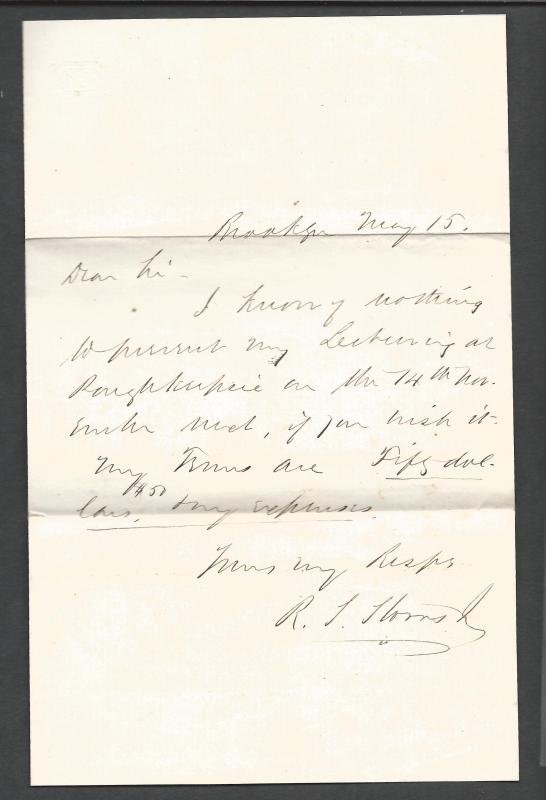 Brooklyn May 15.
Dear Sir -
I know of nothing
to prevent my Lecturing at
Poughkeepsie on the 14th Nov-
ember next, if you wish it.
My Terms are Fifty dol-
$50
lars, & my expenses.
Yours very Respy
R. S. Storrs Jr